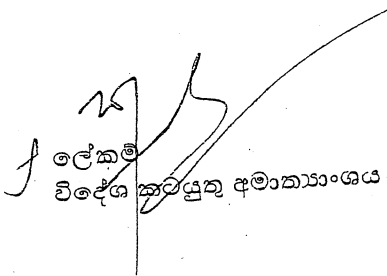 ලේකම්
විදේශ කටයුතු අමාත්‍යාංශය